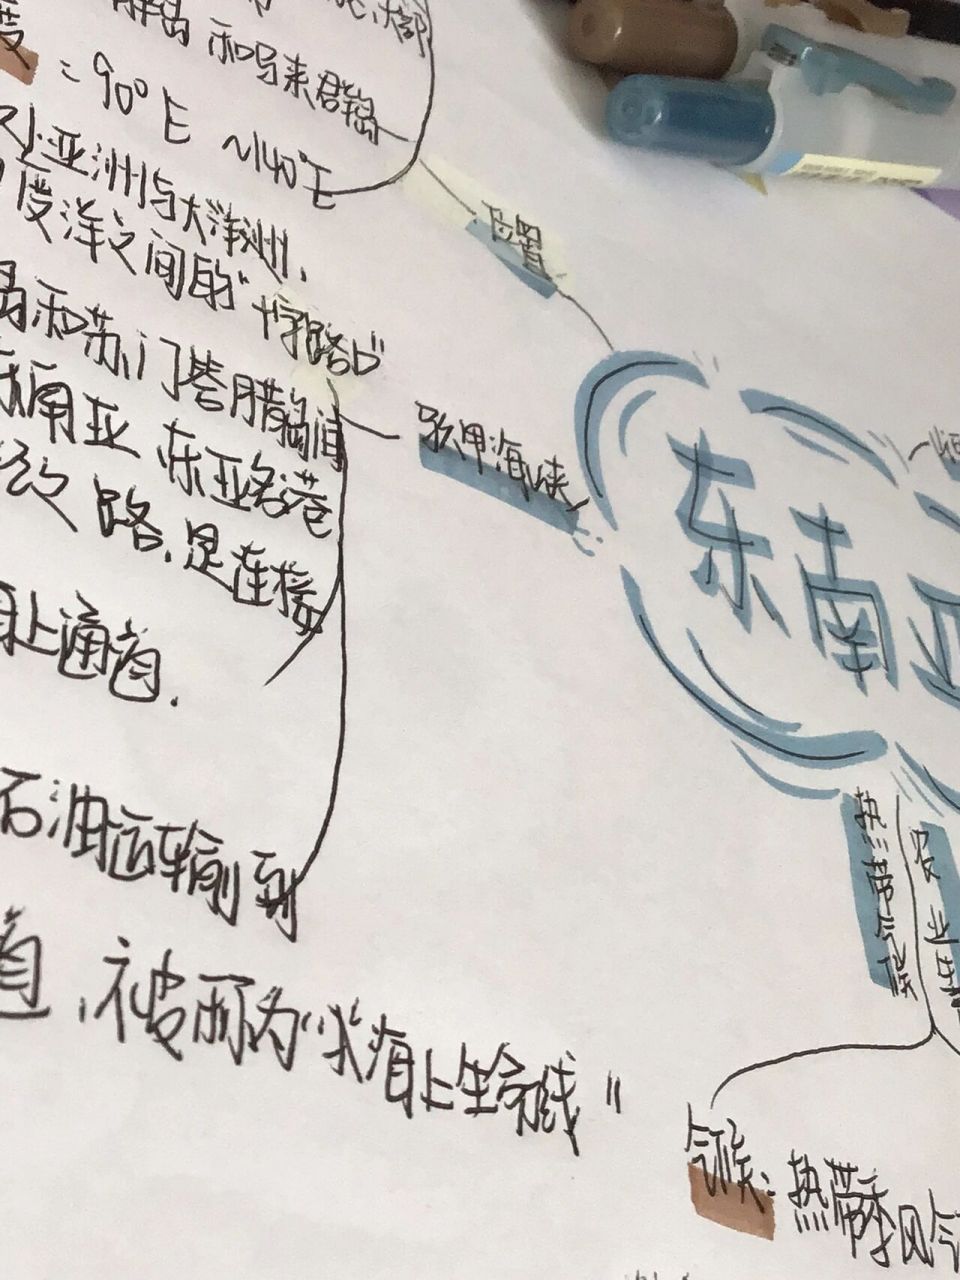 群岛 和马来群岛
度
:90°E ~140°E
亚洲与大洋洲,
度洋之间的"十字路口"
位置
岛和苏门答腊岛间
南亚 东亚各港
路,是连接
上通道.
马六甲海峡
东南亚
石油运输到
道,被称为"海上生命线"
热带气候
农业生
气候:热带季风气